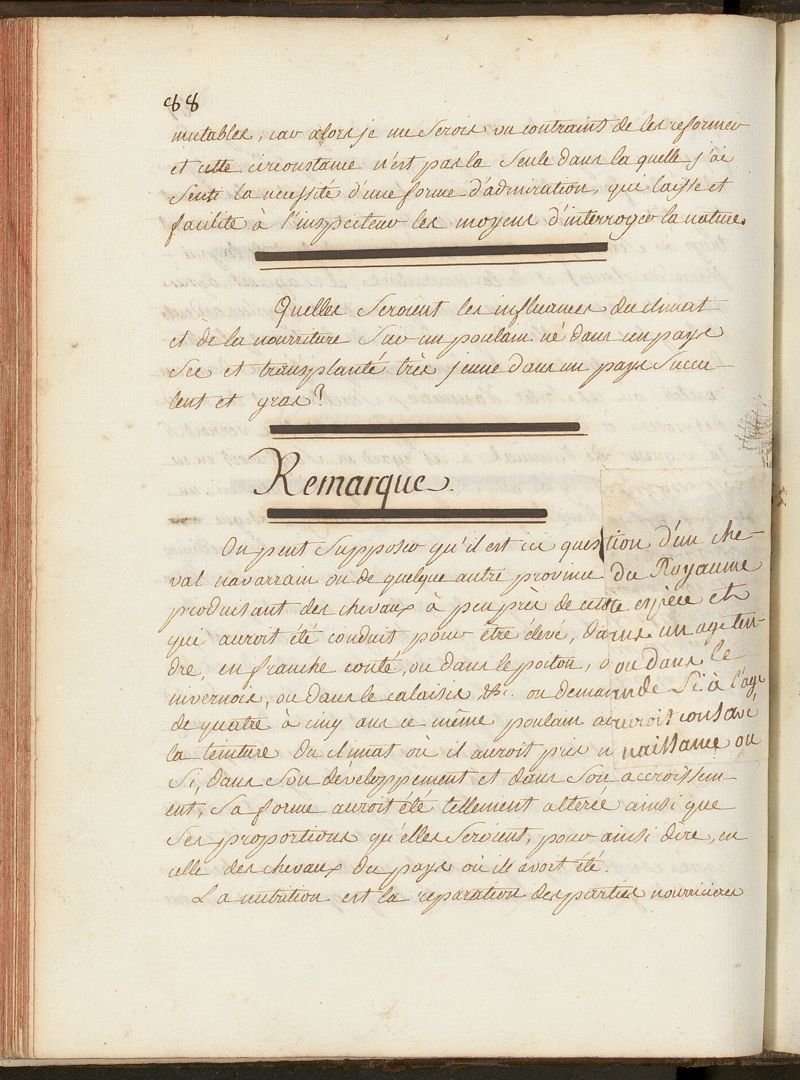 88
mutables, car alors je me serois vu contraint de les reformer
et cette circonstance n'est pas la seule dans la quelle j'ai
senti la necessité d'une forme d'admiration, qui laisse et
facilite à l'inspecteur les moyens d'interroger la nature.
Quelles seroient les influances du climat
et de la nourriture sur un poulain né dans un pays
sec et transplanté très jeune dans un pays succu-
lent et gras?
Remarque.
On peut supposer qu'il est ici question d'un che-
val navarrain ou de quelque autre province du Royaume
produisant des chevaux à peu près de cette espèce et
qui auroit été conduit pour être élevé, dans un age ten-
dre, en franche conté, ou dans le poitou, ou dans le
nivernois, ou dans le calaisis &c. on demande si à l'age
de quatre à cinq ans ce même poulain auroit consavé
la teinture du climat où il auroit pris naissance ou
si, dans son développement et dans son accroissem-
ent, sa forme auroit été tellement alterée ainsi que
ses proportions qu'elles seroient, pour ainsi dire, en
celle des chevaux du pays où il avoit été.
La nutrition est la reparation des parties nourricieres